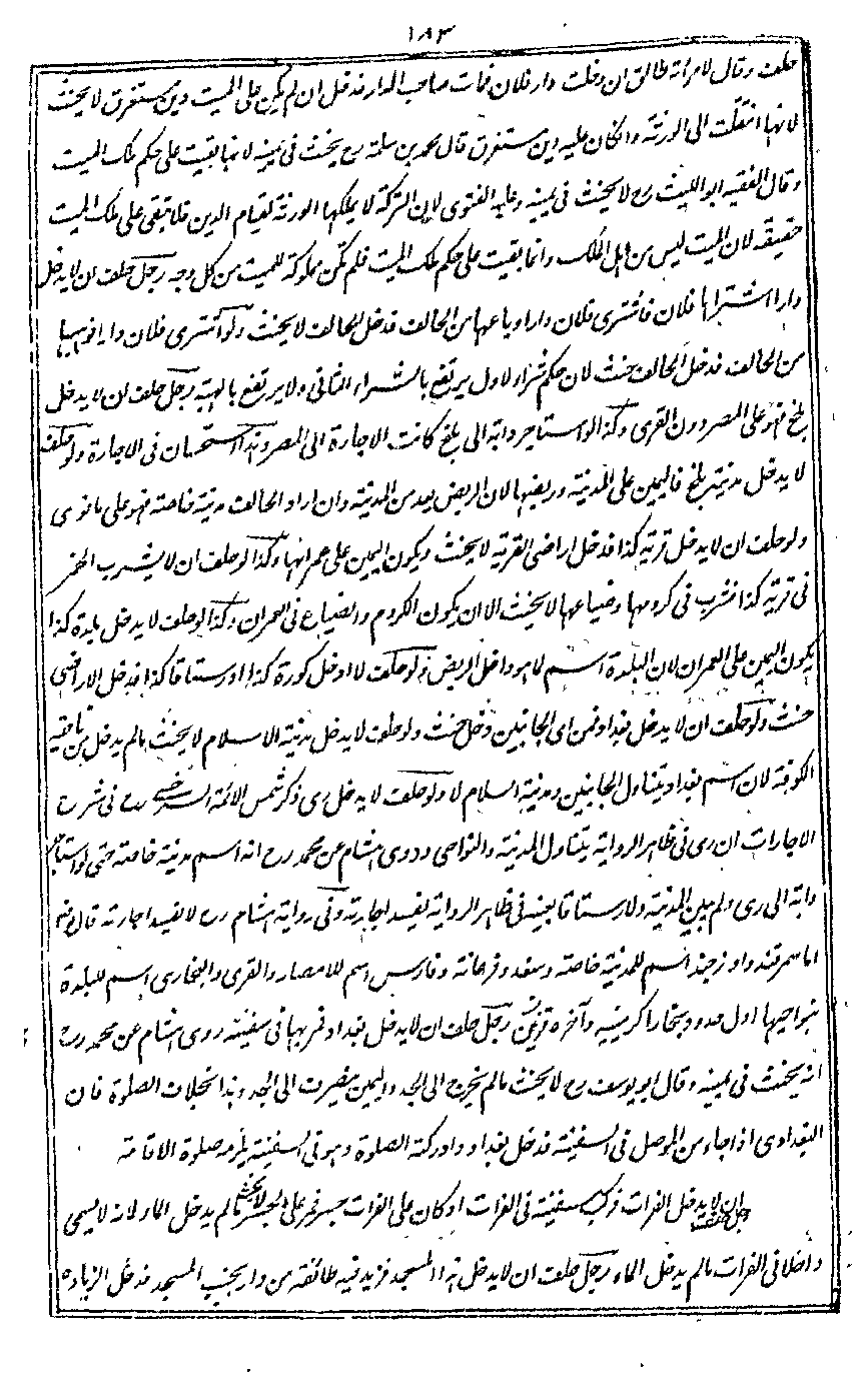 ١٨٣
حلف وقال لامرأته طالق ان دخلت دار فلان فمات صاحب الدار فدخل ان لم يكن على الميت دين مستغرق لا يحنث
لانها انتقلت الى الورثة وان كان عليه دين مستغرق قال محمد بن سلمة رح يحنث فى يمينه لانها بقيت على حكم ملك الميت
وقال الفقيه ابو الليث رح لا يحنث فى يمينه وعليه الفتوى لان التركة لا يملكها الورثة لقيام الدين فلا تبقى على ملك الميت
حقيقة لان الميت ليس من اهل الملك وانما بقيت على حكم ملك الميت فلم تكن مملوكة للميت من كل وجه رجل حلف ان لا يدخل
دارا اشتراها فلان فاشترى فلان دارا وباعها من الحالف فدخل الحالف لا يحنث ولو اشترى فلان دارا فوهبها
من الحالف فدخل الحالف حنث لان حكم شراء لاول يرتفع بالشراء الثانى ولا يرتفع بالهبة رجل حلف ان لا يدخل
بلخ فهو على المصر دون القرى وكذا لو استاجر دابة الى بلخ كانت الاجارة الى المصر وهذا استحسان فى الاجارة ولو حلف
لا يدخل مدينة بلخ فاليمين على المدينة وربضها لان الربض يعد من المدينة وان اراد الحالف مدينة خاصة فهو على ما نوى
ولو حلف ان لا يدخل قرية كذا فدخل اراضى القرية لا يحنث ويكون اليمين على عمرانها وكذا لو حلف ان لا يشرب الخمر
فى قرية كذا فشرب فى كرومها وضياعها لا يحنث الا ان يكون الكروم والضياع فى العمران وكذا لو حلف لا يدخل بلدة كذا
يكون اليمين على العمران لان البلدة اسم لما هو داخل الربض ولو حلف لا ادخل كورة كذا او رستاقا كذا فدخل الاراضى
حنث ولو حلف ان لا يدخل بغداد فمن اى الجانبين دخل حنث ولو حلف لا يدخل مدينة الاسلام لا يحنث ما لم يدخل من ناحية
الكوفة لان اسم بغداد يتناول الجانبين ومدينة السلام لا ولو حلف لا يدخل رى ذكر شمس الائمة السرخسى رح فى شرح
الاجارات ان رى فى ظاهر الرواية يتناول المدينة والنواحى وروى هشام عن محمد رح انه اسم مدينة خاصة حتى لو استاجر
دابة الى رى ولم يبين المدينة ولا رستاقا بعينه فى ظاهر الرواية يفسد اجارته وفى رواية هشام رح لا تفسد اجارته قال رضـ
اما سمرقند واوزجند اسم للمدينة خاصة وسغد وفرغانة وفارس اسم للامصار والقرى والبخارى اسم للبلدة
بنواحيها اول حدود بخارا كرمينيه وآخره رجل حلف ان لا يدخل بغداد فمر بها فى سفينة روى هشام عن محمد رح
انه يحنث فى يمينه وقال ابو يوسف رح لا يحنث ما لم يخرج الى الجد واليمين الى الجد وهذا بخلاف الصلوة فان
البغدادى اذا جاء من الموصل فى السفينة فدخل بغداد وادركته الصلوة وهو فى السفينة يلزمه صلوة الاقامة
رجل حلف ان لا يدخل الفرات فركب سفينة فى الفرات او كان على الفرات جسر فمر على الجسر لا يحنث ما لم يدخل الماء لانه لا يسمى
داخلا فى الفرات ما لم يدخل الماء رجل حلف ان لا يدخل هذا المسجد فزيد فيه طائفة من دار بجنب المسجد فدخل الزيادة